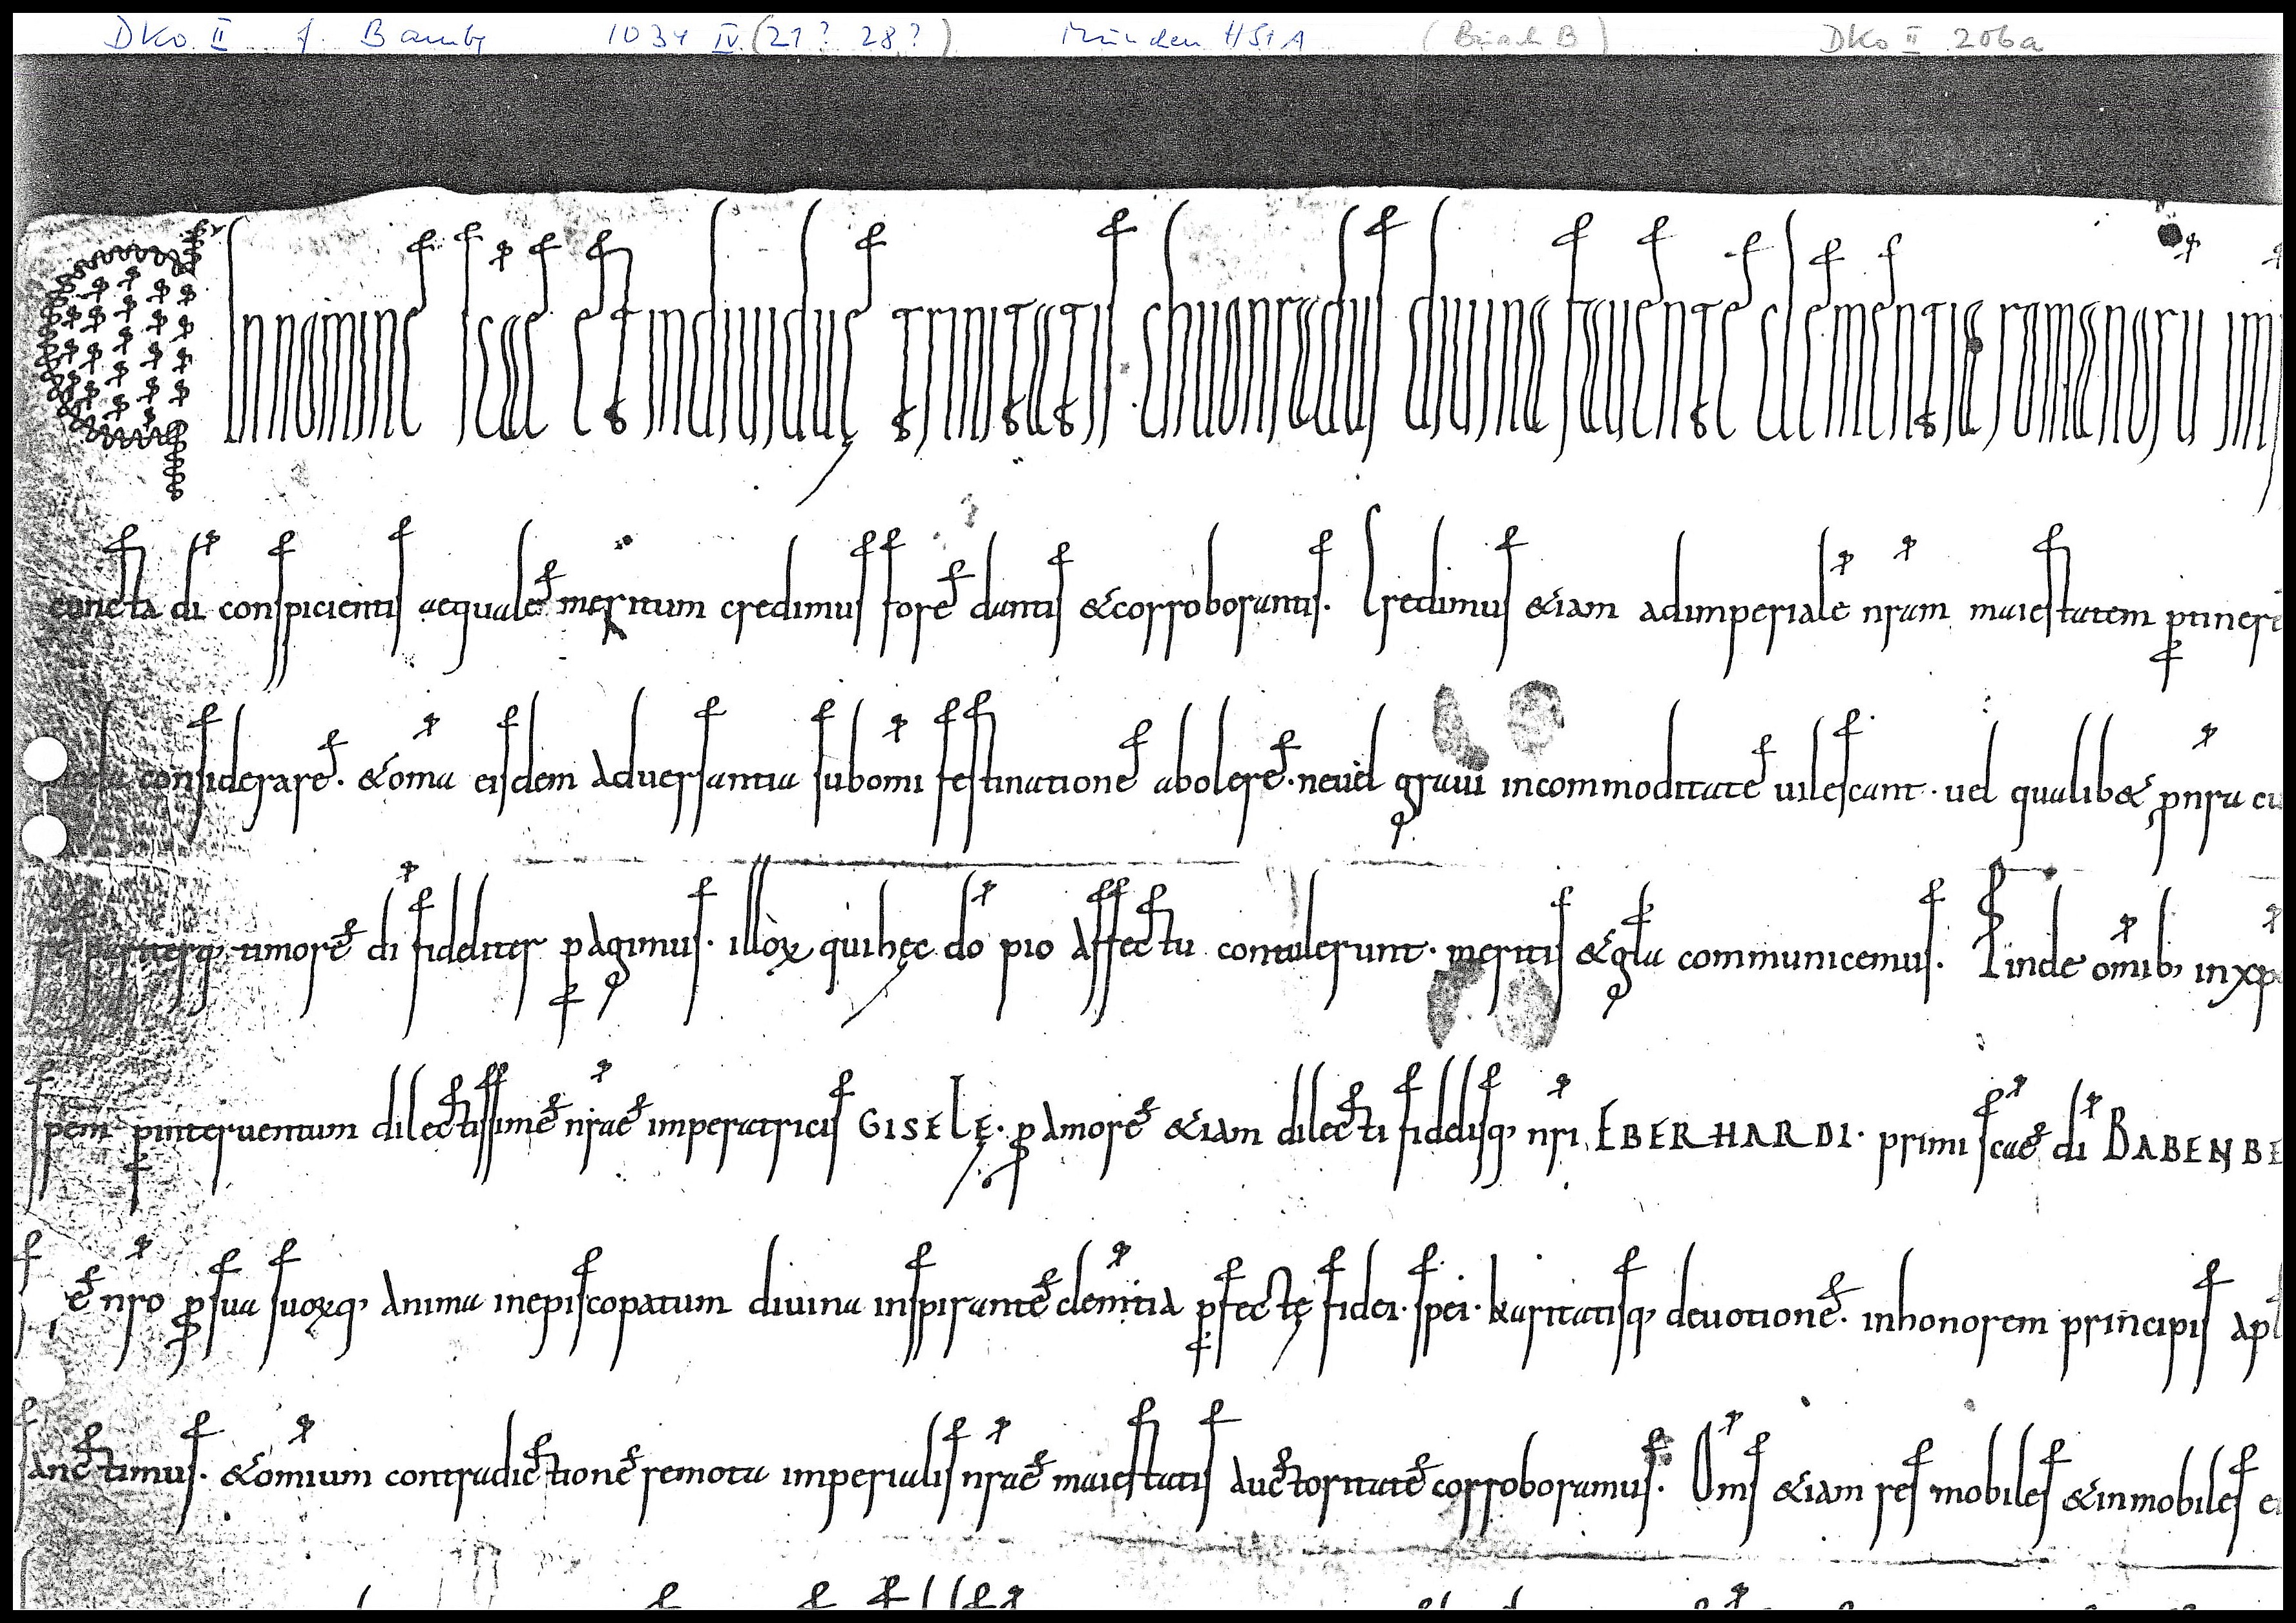 DKo. II f. Bambg 1034 IV (21? 28?) München HStA (Büro B) DKo II 206a
In nomine scae et indiuiduę trinitatis. Chuonradus diuina fauente clementia romanoru im
cuncta di conspicientis aequale meritum credimus fore dantis &corroborantis. Credimus &iam adimperiale nram maiestatem ptinere
considerare. &oma eisdem aduersantia subomi festinatione abolere. neuel graui incommoditate uilescant. uel qualib& pnra cu
timore di fideliter pagimus. illoꝝ quihęc do pio affectu contulerunt. meritis &gla communicemus. Pinde omib; inxp
pem pinteruentum dilectissime nrae imperatricis GISELĘ. p amore &iam dilecti fidelisq; nri EBERHARDI. primi scae di BABENBE
e nro p sua suoꝝq; anima inepiscopatum diuina inspirante clemtia pfectę fidei. spei. karitatisq; deuotione. inhonorem principis apl
sanctimus. &omium contradictione remota imperialis nrae maiestatis auctoritate corroboramus. Oms &iam res mobiles &inmobiles e